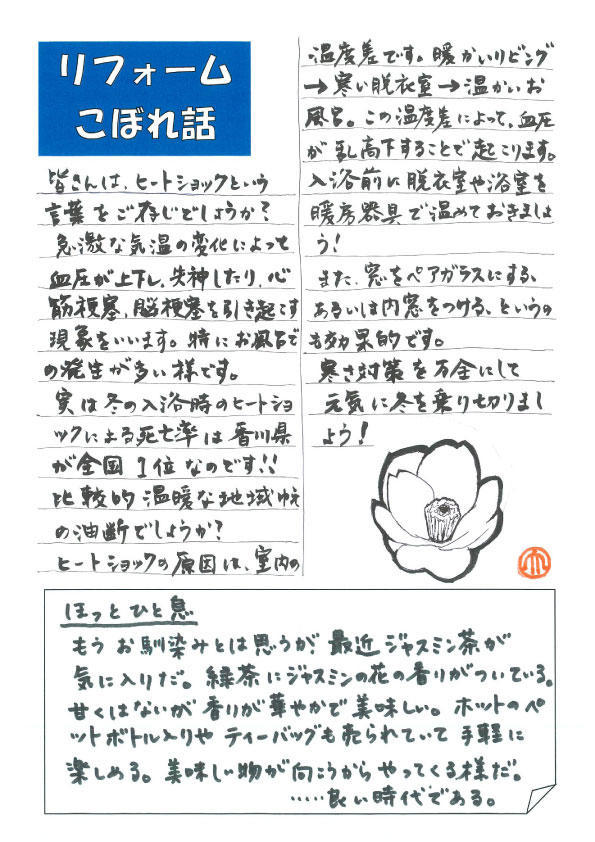 リフォーム
こぼれ話
皆さんは、ヒートショックという
言葉をご存じでしょうか?
急激な気温の変化によって
血圧が上下し、失神したり、心
筋梗塞、脳梗塞を引き起こす
現象をいいます。特にお風呂で
の発生が多い様です。
実は冬の入浴時のヒートショ
ックによる死亡率は香川県
が全国1位なのです!!
比較的温暖な地域ゆえ
の油断でしょうか?
ヒートショックの原因は、室内の
温度差です。暖かいリビング
→寒い脱衣室→温かいお
風呂。この温度差によって、血圧
が乱高下することで起こります。
入浴前に脱衣室や浴室を
暖房器具で温めておきましょ
う!
また、窓をペアガラスにする、
あるいは内窓をつける、というの
も効果的です。
寒さ対策を万全にして
元気に冬を乗り切りまし
ょう!
ほっとひと息
もうお馴染みとは思うが、最近ジャスミン茶が
気に入りだ。緑茶にジャスミンの花の香りがついている。
甘くはないが香りが華やかで美味しい。ホットのペ
ットボトル入りやティーバッグも売られていて手軽に
楽しめる。美味しい物が向こうからやってくる様だ。
……良い時代である。